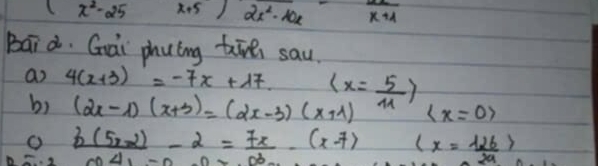 ( x²-25 x+5 ) 2x²-10x x+1
Bài 2. Giải phương trình sau.
a) 4(x+3) = -7x + 17. (x = 5/11)
b) (2x-1) (x+3) = (2x-3) (x+1) (x=0)
c) (5x-2) - 2 = 7x (x-7) (x = 126